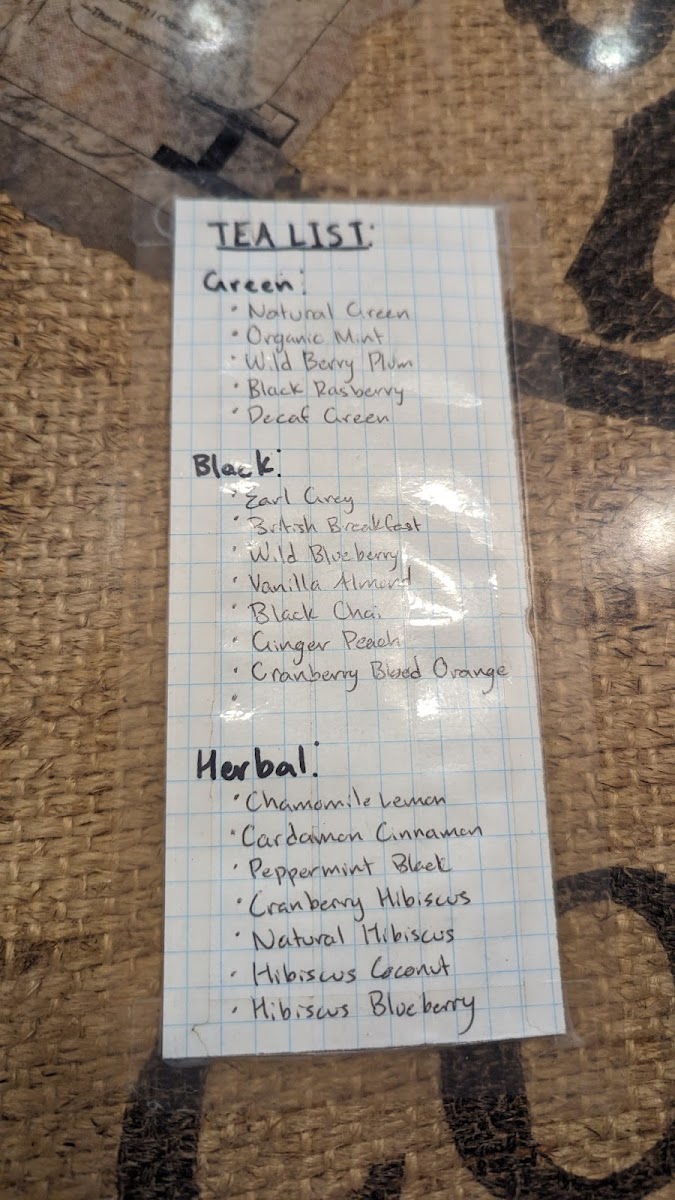 TEA LIST:
Green:
• Natural Green
• Organic Mint
• Wild Berry Plum
• Black Rasberry
• Decaf Green
Black:
• Earl Grey
• British Breakfast
• Wild Blueberry
• Vanilla Almond
• Black Chai
• Ginger Peach
• Cranberry Blood Orange
•
Herbal:
• Chamomile Lemon
• Cardamon Cinnamon
• Peppermint Black
• Cranberry Hibiscus
• Natural Hibiscus
• Hibiscus Coconut
• Hibiscus Blueberry